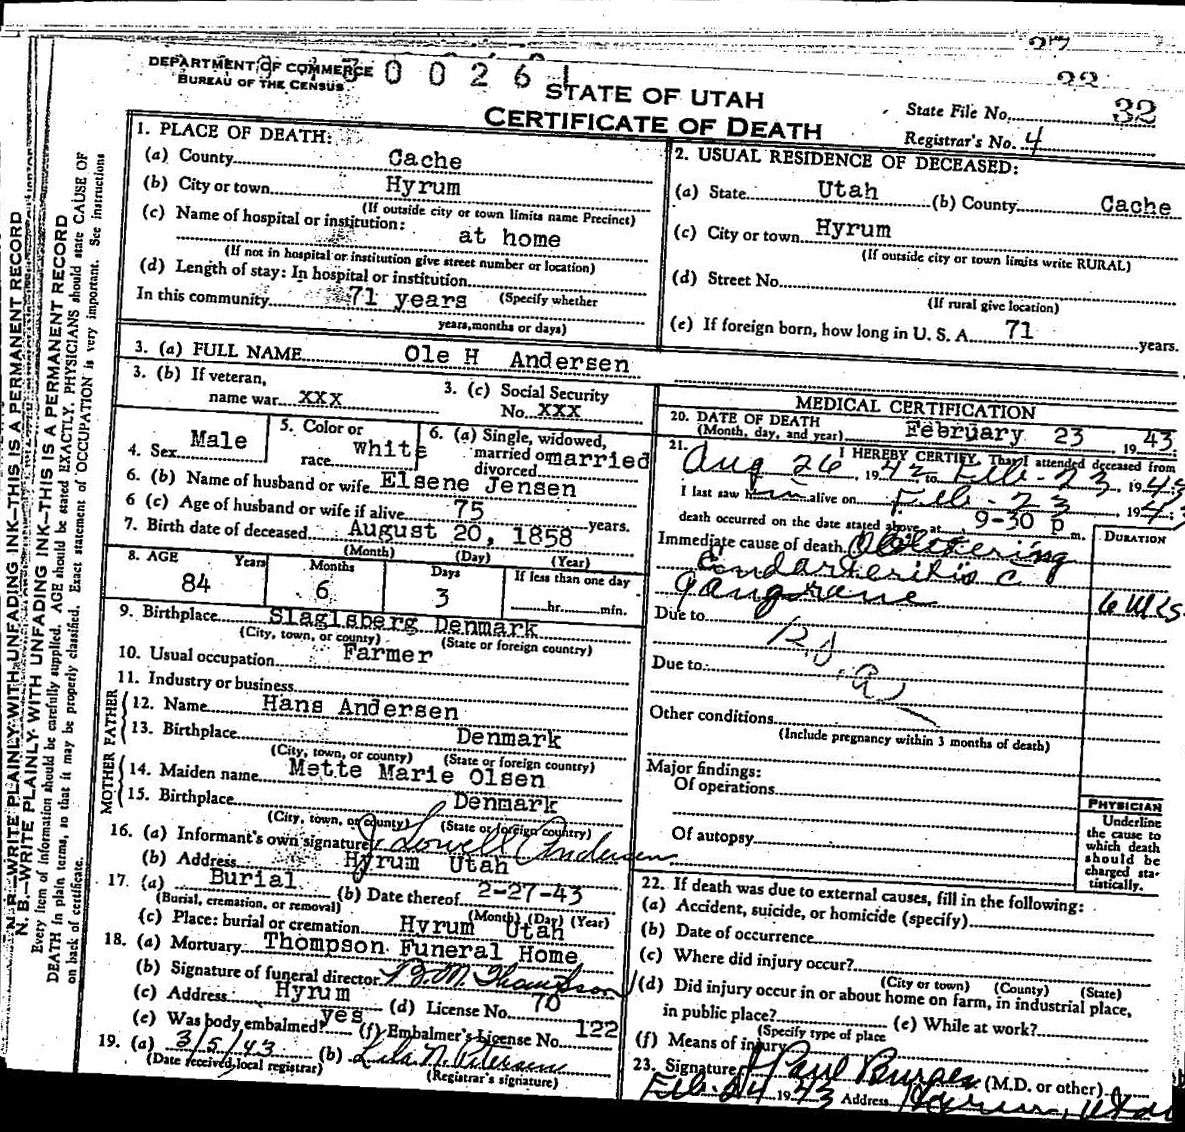 DEPARTMENT OF COMMERCE
BUREAU OF THE CENSUS
0 0 2 6 1
STATE OF UTAH
CERTIFICATE OF DEATH
State File No. 32
Registrar's No. 4
N. B.—WRITE PLAINLY WITH UNFADING INK—THIS IS A PERMANENT RECORD
N. B.—WRITE PLAINLY WITH UNFADING INK—THIS IS A PERMANENT RECORD
Every item of information should be carefully supplied. AGE should be stated EXACTLY. PHYSICIANS should state CAUSE OF
DEATH in plain terms, so that it may be properly classified. Exact statement of OCCUPATION is very important. See instructions
on back of certificate.
1. PLACE OF DEATH:
(a) County Cache
(b) City or town Hyrum
(If outside city or town limits name Precinct)
(c) Name of hospital or institution:
at home
(If not in hospital or institution give street number or location)
(d) Length of stay: In hospital or institution
In this community 71 years (Specify whether
years, months or days)
2. USUAL RESIDENCE OF DECEASED:
(a) State Utah (b) County Cache
(c) City or town Hyrum
(If outside city or town limits write RURAL)
(d) Street No.
(If rural give location)
(e) If foreign born, how long in U. S. A. 71 years.
3. (a) FULL NAME Ole H Andersen
3. (b) If veteran,
name war XXX
3. (c) Social Security
No. XXX
4. Sex Male
5. Color or
race White
6. (a) Single, widowed,
married or married
divorced
6. (b) Name of husband or wife Elsene Jensen
6 (c) Age of husband or wife if alive 75 years.
7. Birth date of deceased August 20, 1858
(Month) (Day) (Year)
8. AGE Years Months Days If less than one day
84 6 3 hr. min.
9. Birthplace Slaglsberg Denmark
(City, town, or county) (State or foreign country)
10. Usual occupation Farmer
11. Industry or business
FATHER
12. Name Hans Andersen
13. Birthplace Denmark
(City, town, or county) (State or foreign country)
MOTHER
14. Maiden name Mette Marie Olsen
15. Birthplace Denmark
(City, town, or county) (State or foreign country)
16. (a) Informant's own signature J Lowell Andersen
(b) Address Hyrum Utah
17. (a) Burial (b) Date thereof 2-27-43
(Burial, cremation, or removal) (Month) (Day) (Year)
(c) Place: burial or cremation Hyrum Utah
18. (a) Mortuary Thompson Funeral Home
(b) Signature of funeral director Thompson
(c) Address Hyrum (d) License No. 70
(e) Was body embalmed? yes (f) Embalmer's License No. 122
19. (a) 3/5/43 (b) Lila N. Petersen
(Date received, local registrar) (Registrar's signature)
MEDICAL CERTIFICATION
20. DATE OF DEATH
(Month, day, and year) February 23 1943.
21. I HEREBY CERTIFY, That I attended deceased from
Aug 26, 1942 to Feb-23, 1943
I last saw him alive on Feb-23 1943
death occurred on the date stated above, at 9-30 p m.
DURATION
Immediate cause of death Obliterating
Endarteritis c
gangrene 6 wks
Due to
Due to
Other conditions
(Include pregnancy within 3 months of death)
Major findings:
Of operations
Of autopsy
PHYSICIAN
Underline
the cause to
which death
should be
charged sta-
tistically.
22. If death was due to external causes, fill in the following:
(a) Accident, suicide, or homicide (specify)
(b) Date of occurrence
(c) Where did injury occur?
(City or town) (County) (State)
(d) Did injury occur in or about home on farm, in industrial place,
in public place? (e) While at work?
(Specify type of place
(f) Means of injury
23. Signature J Paul Burgess (M.D. or other)
Feb. 24 1943 Address Hyrum, Utah